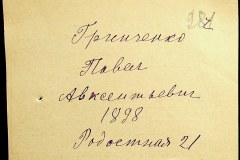 Гринченко
Павел
Авксентьевич
1898
Радостная 21